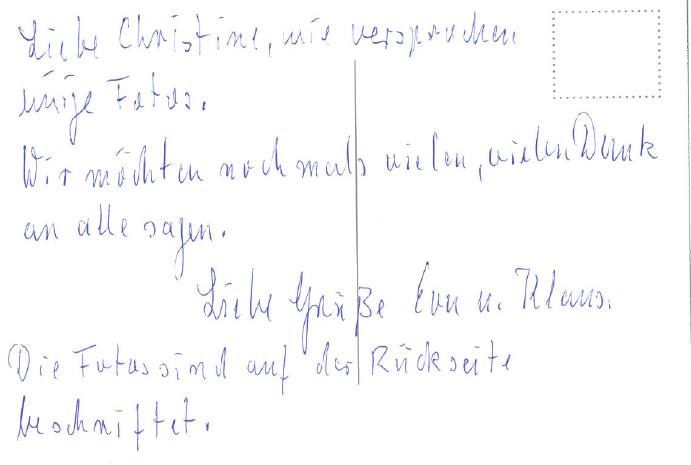 Liebe Christine, wie versprochen
einige Fotos.
Wir möchten nochmals vielen, vielen Dank
an alle sagen.
Liebe Grüße Eva u. Klaus.
Die Fotos sind auf der Rückseite
beschriftet.